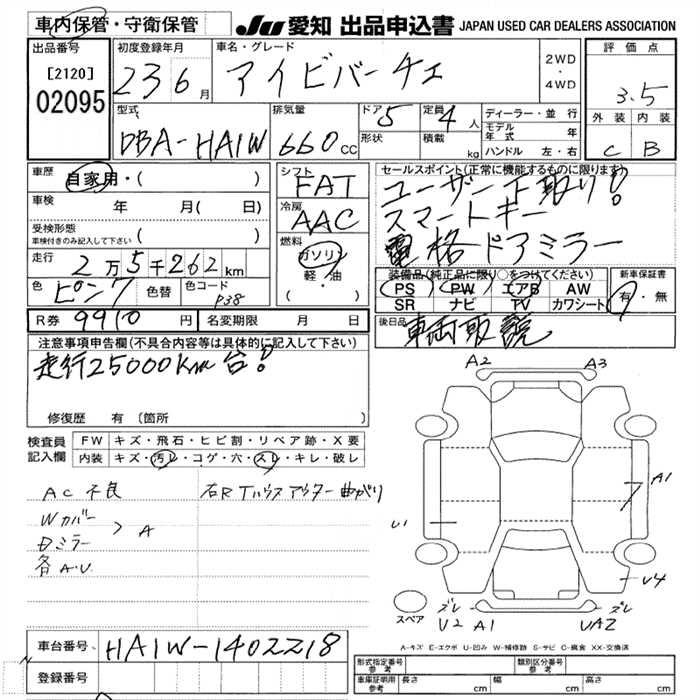 車内保管・守衛保管 JU 愛知 出品申込書 JAPAN USED CAR DEALERS ASSOCIATION
出品番号 初度登録年月 車名・グレード 2WD・4WD 評価点
[2120] 02095 23 6月 アイビバーチェ 3.5
型式 排気量 ドア 定員 ディーラー・並行 外装 内装
DBA-HA1W 660cc 5 4人 モデル年式 年 C B
形状 積載 kg ハンドル 左・右
車歴 自家用・( ) シフト FAT セールスポイント(正常に機能するものに限ります)
車検 年 月( 日) 冷房 AAC ユーザー下取り!
受検形態 スマートキー
車検付きのみ記入して下さい ( ) 燃料 ガソリン 電格ドアミラー
走行 2万5千262km 軽・油 装備品(純正品に限り○をつけてください) 新車保証書
色 ピンク 色替 色コード P38 ( ) PS PW エアB AW 有・無
SR ナビ TV カワシート
R券 9910円 名変期限 月 日 後日品 車両取説
注意事項申告欄(不具合内容等は具体的に記入して下さい)
走行25000Km台!
修復歴 有 〔箇所 〕
検査員記入欄 FW キズ・飛石・ヒビ割・リペア跡・X要
内装 キズ・汚レ・コゲ・穴・スレ・キレ・破レ
AC不良 右Rタハウスアウター曲がり
Wカバー
Dミラー > A
各A・U
A2 A3
A1
U1
U4
スペア ズレ ズレ
U2 A1 UA2
A-キズ E-エクボ U-凹み W-補修跡 S-サビ C-腐食 XX-交換済
車台番号 HA1W-1402218
登録番号
型式指定番号 参考 類別区分番号 参考
車庫証明用 参考 長さ cm 幅 cm 高さ cm